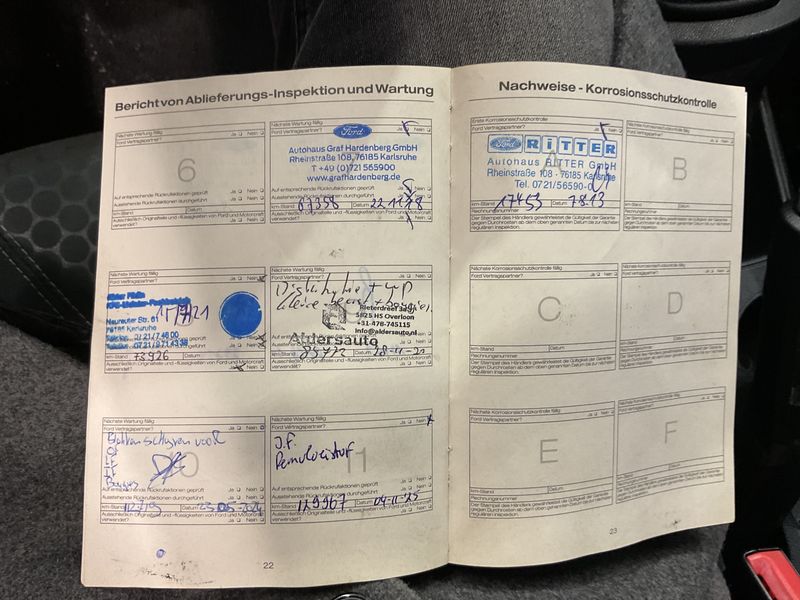 Bericht von Ablieferungs-Inspektion und Wartung
Nächste Wartung fällig
Ford Vertragspartner? Ja Nein
6
Auf entsprechende Rückrufaktionen geprüft Ja Nein
Ausstehende Rückrufaktionen durchgeführt Ja Nein
km-Stand Datum
Ausschließlich Originalteile und -flüssigkeiten von Ford und Motorcraft
verwendet? Ja Nein
Nächste Wartung fällig
Ford Vertragspartner? Ja Nein
Ford
Autohaus Graf Hardenberg GmbH
Rheinstraße 108, 76185 Karlsruhe
T +49 (0)721 565900
www.grafhardenberg.com
Auf entsprechende Rückrufaktionen geprüft Ja Nein
Ausstehende Rückrufaktionen durchgeführt Ja Nein
km-Stand Datum 22.11.18
Ausschließlich Originalteile und -flüssigkeiten von Ford und Motorcraft
verwendet? Ja Nein
Nächste Wartung fällig
Neureuter Str.
76185 Karlsruhe
km-Stand 73926 Datum
Ausschließlich Originalteile und -flüssigkeiten von Ford und Motorcraft
verwendet?
Nächste Wartung fällig
Ford Vertragspartner? Ja Nein
kleine beurt
5825 HS Overloon
+31-478-745115
info@aldersauto.nl
Aldersauto
km-Stand Datum 28-11-21
Ausschließlich Originalteile und -flüssigkeiten von Ford und Motorcraft
verwendet?
Nächste Wartung fällig
Ford Vertragspartner? Ja Nein
Auf entsprechende Rückrufaktionen geprüft Ja Nein
Ausstehende Rückrufaktionen durchgeführt Ja Nein
km-Stand Datum
Ausschließlich Originalteile und -flüssigkeiten von Ford und Motorcraft
verwendet? Ja Nein
Nächste Wartung fällig
Ford Vertragspartner? Ja Nein
11
Remvloeistof
Auf entsprechende Rückrufaktionen geprüft Ja Nein
Ausstehende Rückrufaktionen durchgeführt Ja Nein
km-Stand 129967 Datum 04-11-25
Ausschließlich Originalteile und -flüssigkeiten von Ford und Motorcraft
verwendet? Ja Nein
22
Nachweise - Korrosionsschutzkontrolle
Erste Korrosionsschutzkontrolle
Ford Vertragspartner? Ja Nein
Ford RITTER
Autohaus RITTER GmbH
Rheinstraße 108 - 76185 Karlsruhe
Tel. 0721/56590-0
km-Stand 17453 Datum 7.8.13
Rechnungsnummer
Der Stempel des Händlers gewährleistet die Gültigkeit der Garantie
gegen Durchrosten ab dem oben genannten Datum bis zur nächsten
regulären Inspektion.
Nächste Korrosionsschutzkontrolle fällig
Ford Vertragspartner? Ja Nein
B
km-Stand Datum
Rechnungsnummer
Der Stempel des Händlers gewährleistet die Gültigkeit der Garantie
gegen Durchrosten ab dem oben genannten Datum bis zur nächsten
regulären Inspektion.
Nächste Korrosionsschutzkontrolle fällig
Ford Vertragspartner? Ja Nein
C
km-Stand Datum
Rechnungsnummer
Der Stempel des Händlers gewährleistet die Gültigkeit der Garantie
gegen Durchrosten ab dem oben genannten Datum bis zur nächsten
regulären Inspektion.
Nächste Korrosionsschutzkontrolle fällig
Ford Vertragspartner? Ja Nein
D
km-Stand Datum
Rechnungsnummer
Der Stempel des Händlers gewährleistet die Gültigkeit der Garantie
gegen Durchrosten ab dem oben genannten Datum bis zur nächsten
regulären Inspektion.
Nächste Korrosionsschutzkontrolle fällig
Ford Vertragspartner? Ja Nein
E
km-Stand Datum
Rechnungsnummer
Der Stempel des Händlers gewährleistet die Gültigkeit der Garantie
gegen Durchrosten ab dem oben genannten Datum bis zur nächsten
regulären Inspektion.
Nächste Korrosionsschutzkontrolle fällig
Ford Vertragspartner? Ja Nein
F
km-Stand Datum
Rechnungsnummer
Der Stempel des Händlers gewährleistet die Gültigkeit der Garantie
gegen Durchrosten ab dem oben genannten Datum bis zur nächsten
regulären Inspektion.
23